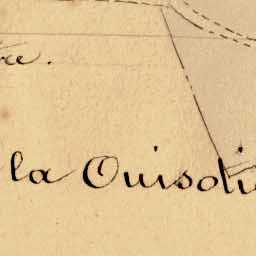 tre.
la Ouisoti